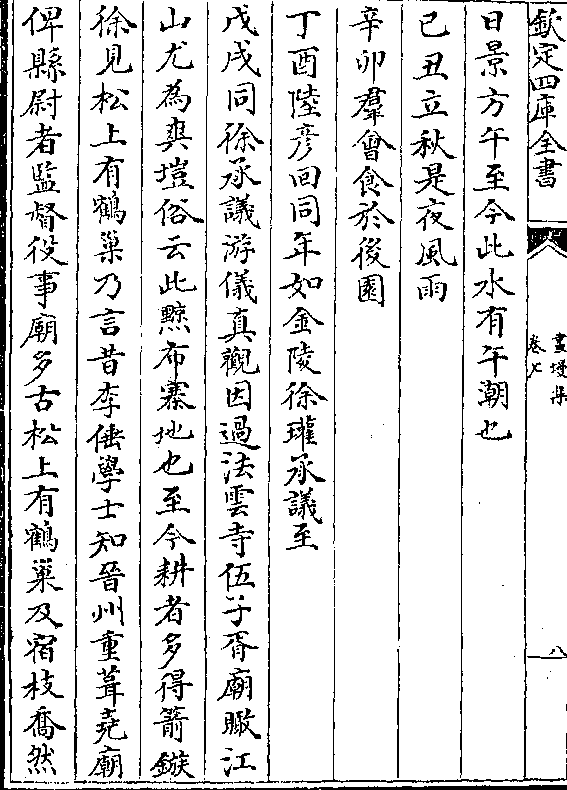 欽定四庫全書
畫墁集
卷七
八
日景方午至今此水有午潮也
己丑立秋是夜風雨
辛卯羣會食於後園
丁酉陸彦回同年如金陵徐瓘承議至
戊戌同徐承議游儀真觀因過法雲寺伍子胥廟瞰江
山尤為爽塏俗云此黥布寨地也至今耕者多得箭鏃
徐見松上有鶴巢乃言昔李倕學士知晉州重葺堯廟
俾縣尉者監督役事廟多古松上有鶴巢及宿枝喬然